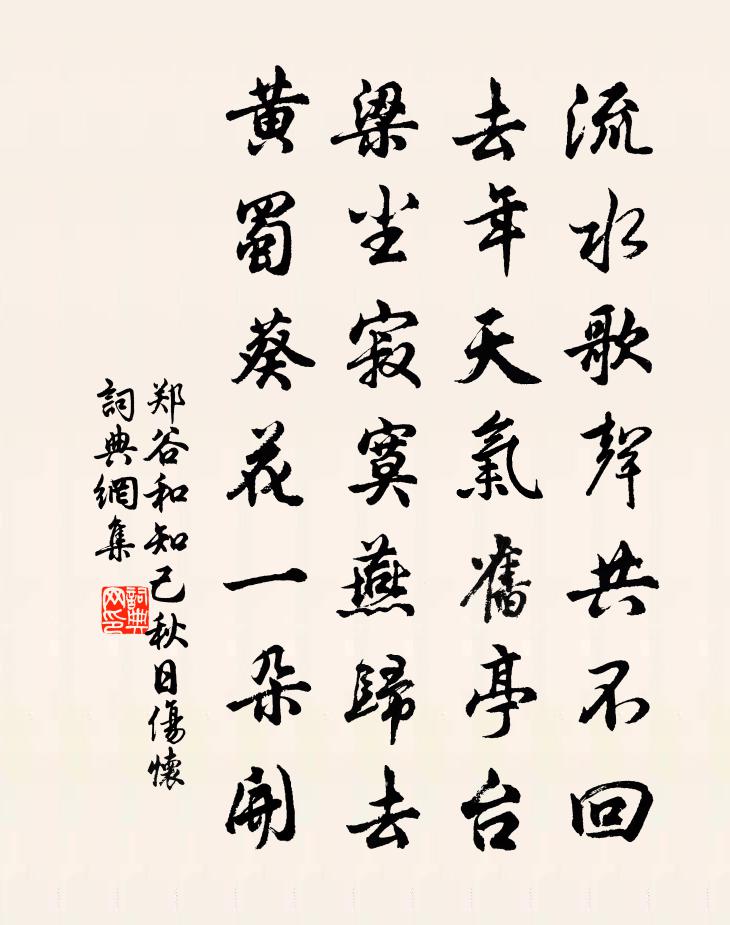 流水歌聲共不回
去年天氣舊亭台
梁尘寂寞燕歸去
黃蜀葵花一朵開
郑谷和知己秋日傷懷
詞典網集
詞典网印